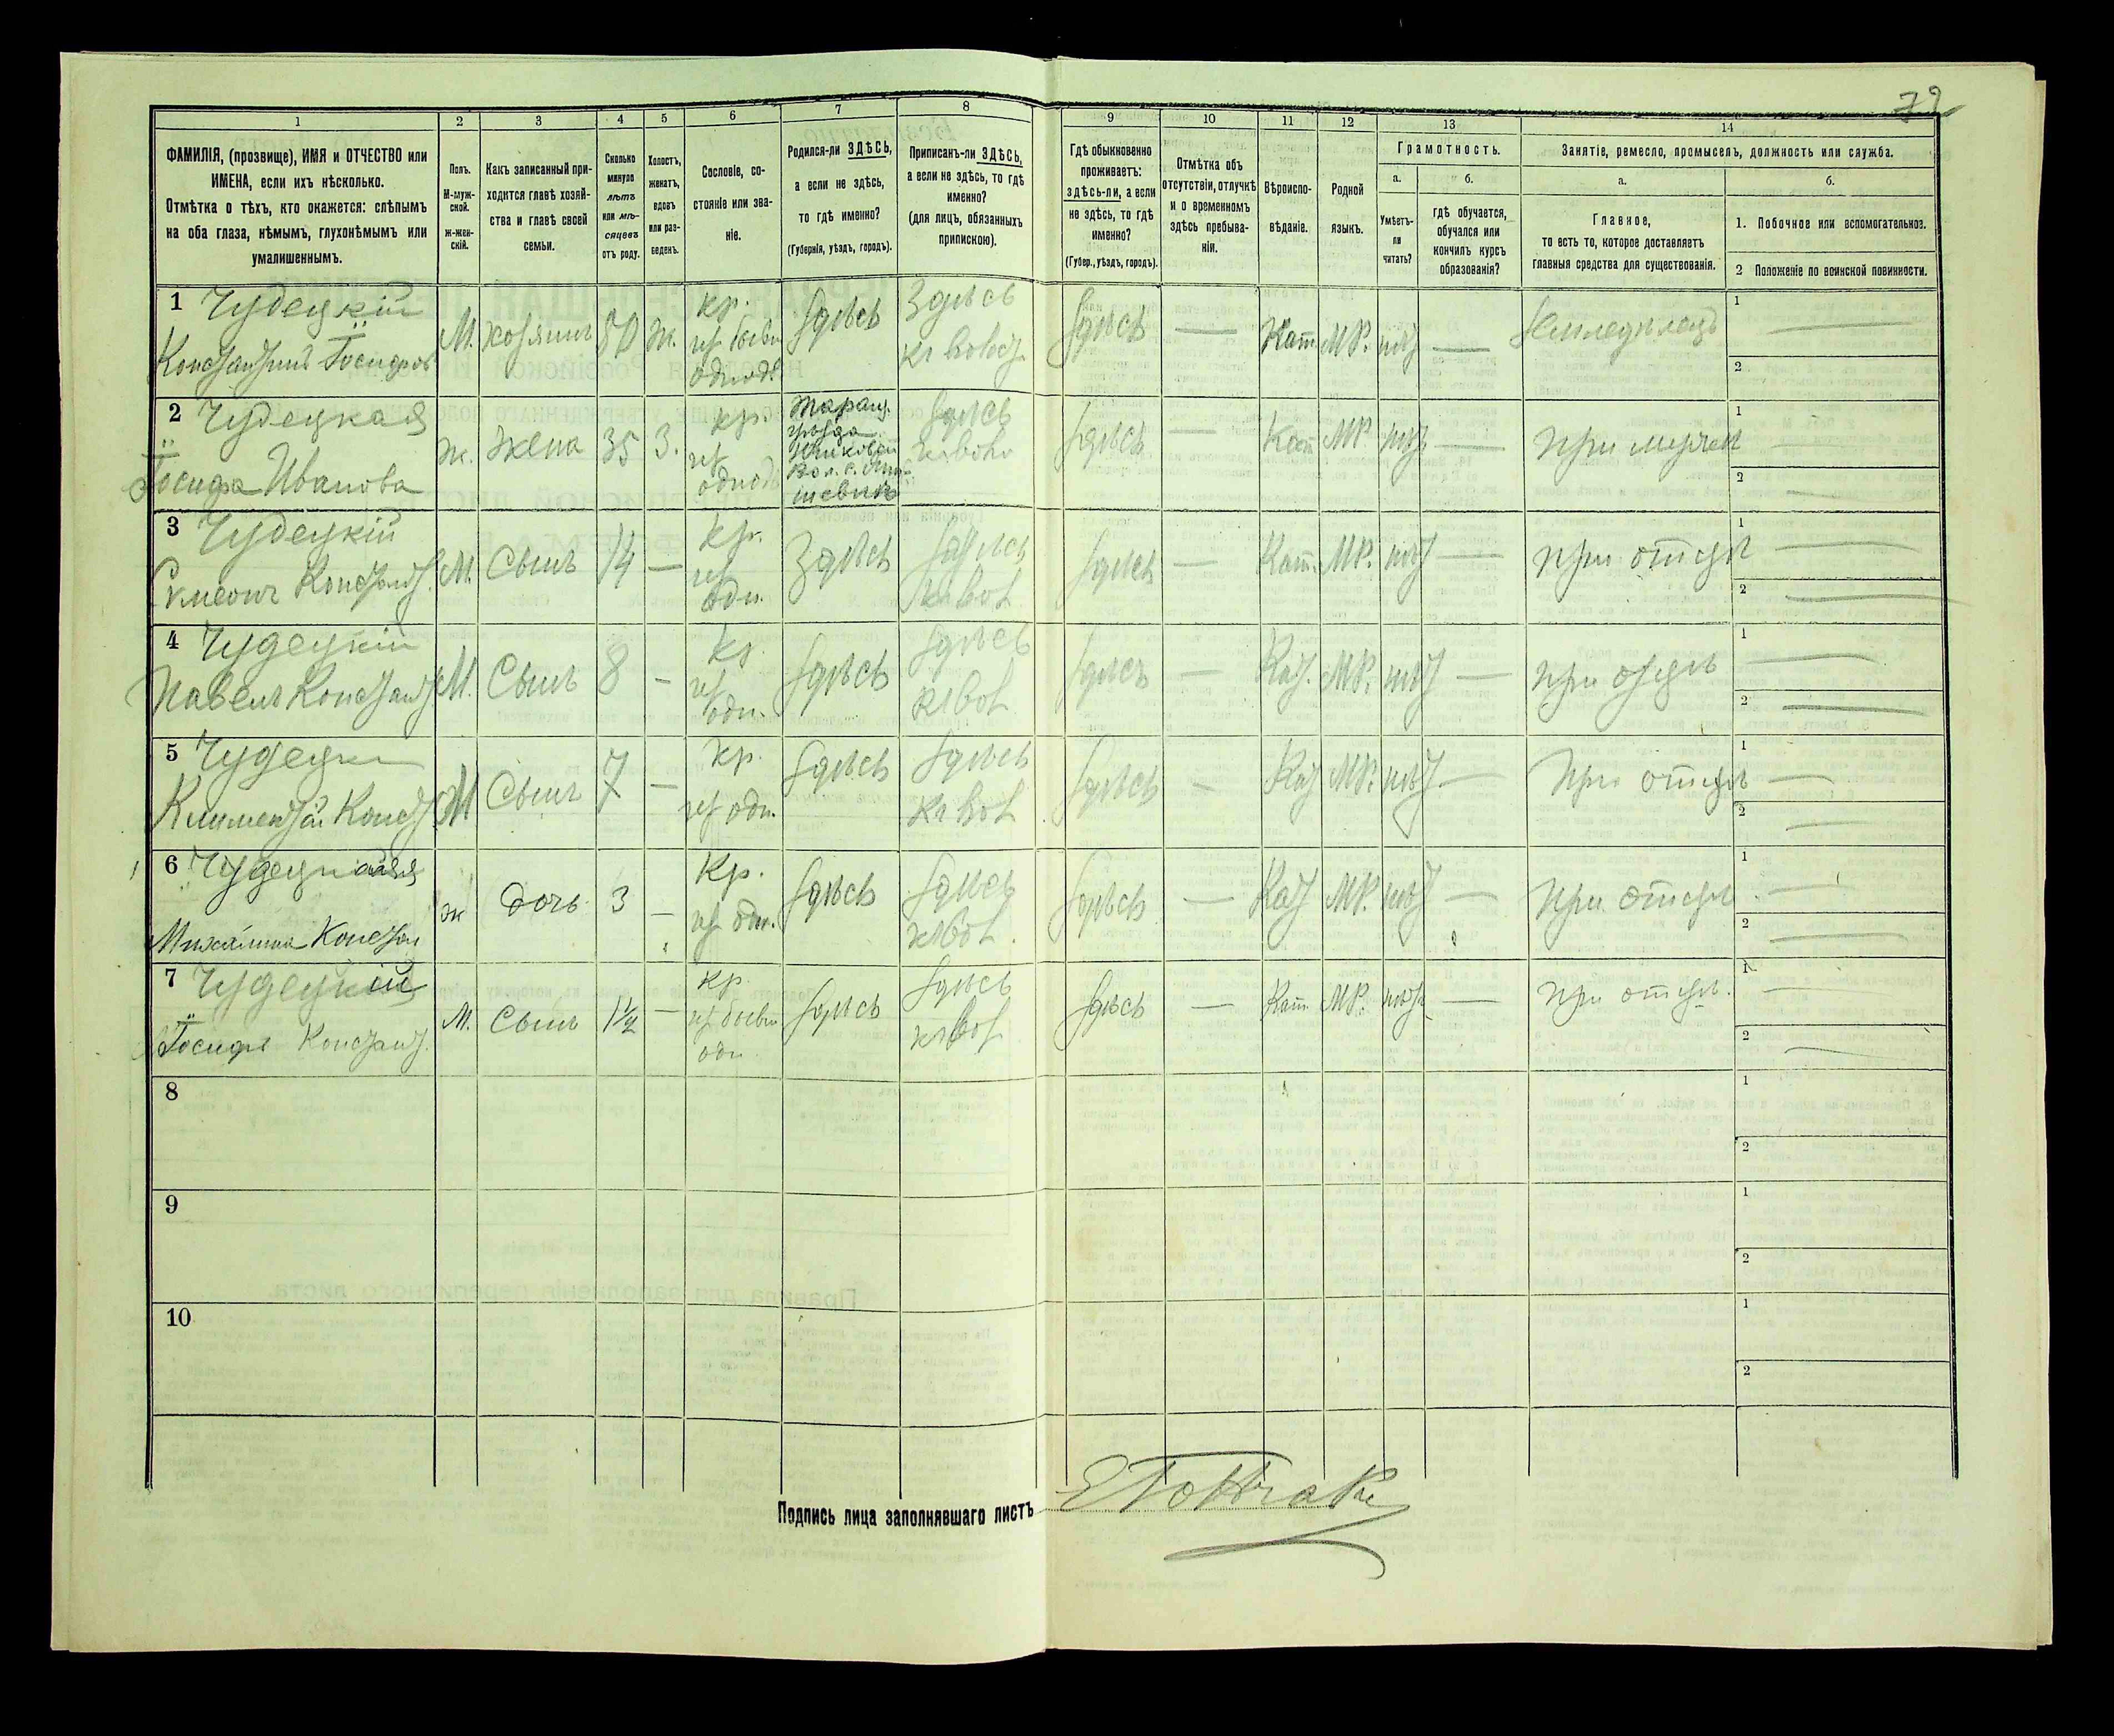 79
1 2 3 4 5 6 7 8 9 10 11 12 13 14
ФАМИЛІЯ, (прозвище), ИМЯ и ОТЧЕСТВО или
ИМЕНА, если ихъ нѣсколько.
Отмѣтка о тѣхъ, кто окажется: слѣпымъ
на оба глаза, нѣмымъ, глухонѣмымъ или
умалишеннымъ.
Полъ.
М-муж-
ской.
ж-жен-
скій.
Какъ записанный при-
ходится главѣ хозяй-
ства и главѣ своей
семьи.
Сколько
минуло
лѣтъ
или мѣ-
сяцевъ
отъ роду.
Холостъ,
женатъ,
вдовъ
или раз-
веденъ.
Сословіе, со-
стояніе или зва-
ніе.
Родился-ли ЗДѢСЬ,
а если не здѣсь,
то гдѣ именно?
(Губернія, уѣздъ, городъ).
Приписанъ-ли ЗДѢСЬ,
а если не здѣсь, то гдѣ
именно?
(для лицъ, обязанныхъ
припискою).
Гдѣ обыкновенно
проживаетъ:
здѣсь-ли, а если
не здѣсь, то гдѣ
именно?
(Губер., уѣздъ, городъ).
Отмѣтка объ
отсутствіи, отлучкѣ
и о временномъ
здѣсь пребыва-
ніи.
Вѣроиспо-
вѣданіе.
Родной
языкъ.
Грамотность.
а.
Умѣетъ-
ли
читать?
б.
гдѣ обучается,
обучался или
кончилъ курсъ
образованія?
Занятіе, ремесло, промыселъ, должность или служба.
а.
Главное,
то есть то, которое доставляетъ
главныя средства для существованія.
б.
1. Побочное или вспомогательное.
2 Положеніе по воинской повинности.
1 Чудецкій
Константинъ Іосифов
М. хозяинъ 50 ж. кр. Здѣсь Здѣсь Здѣсь — Кат. МР. нѣт — Земледѣлецъ
1
2
2 Чудецкая
Іосифа Иванова
ж. жена 35 З. кр. Здѣсь Здѣсь — Кат МР нѣт — при мужѣ
1
2
3 Чудецкій
Сумеонъ Констант.
М. Сынъ 14 — кр. Здѣсь Здѣсь Здѣсь — Кат. МР. нѣт — при отцѣ
1
2
4 Чудецкій
Павелъ Констант
М. Сынъ 8 — кр. Здѣсь Здѣсь Здѣсь — Кат. МР. нѣт — при отцѣ
1
2
5 Чудецки
Климентій Конст
М Сынъ 7 — кр. Здѣсь Здѣсь Здѣсь — Кат МР. нѣт — при отцѣ
1
2
6 Чудецкая
Михалина Констан
ж дочь 3 — Кр. Здѣсь Здѣсь Здѣсь — Кат МР. нѣт — при отцѣ
1
2
7 Чудецкій
Іосифъ Констант.
М. Сынъ 1½ — кр. Здѣсь Здѣсь Здѣсь — Кат. МР. нѣт — при отцѣ.
1
2
8
1
2
9
1
2
10
1
2
Подпись лица заполнявшаго листъ